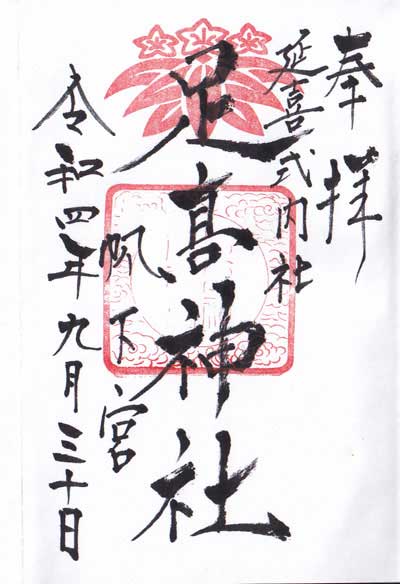 奉拝
延喜式内社
足髙神社
帆下宮
令和四年九月三十日